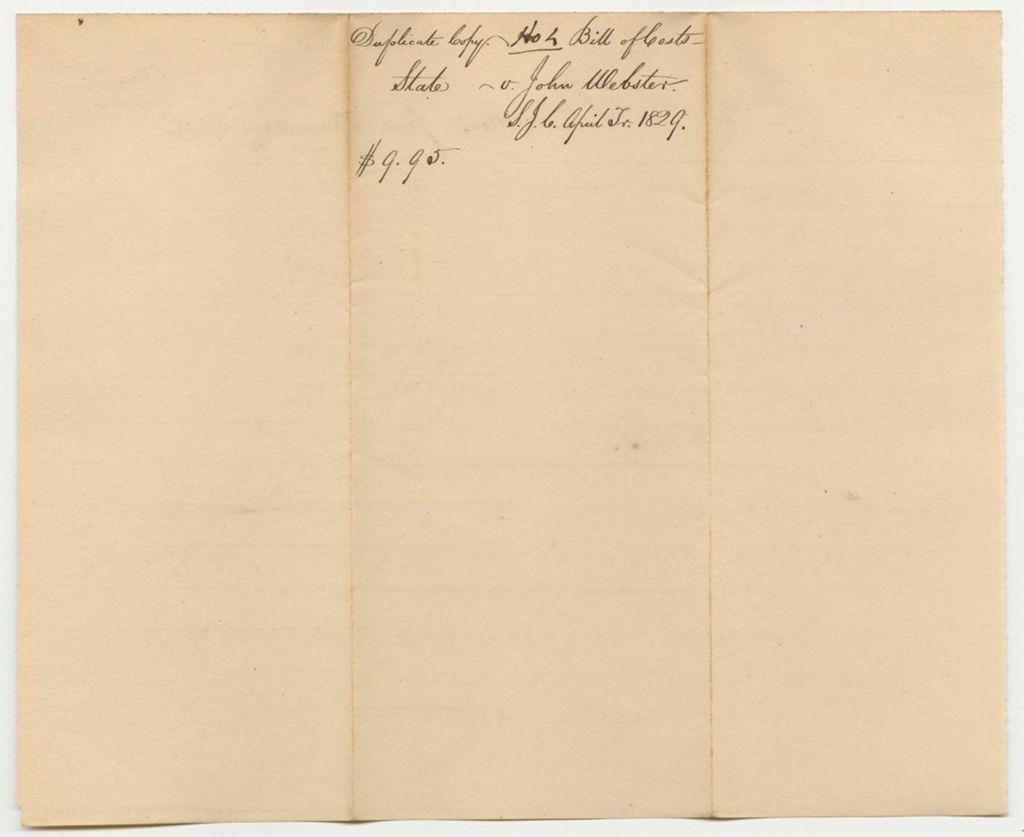 Duplicate Copy. Bill of Costs
State v. John Webster.
S. J. C. April Tr. 1829.
$9.95.